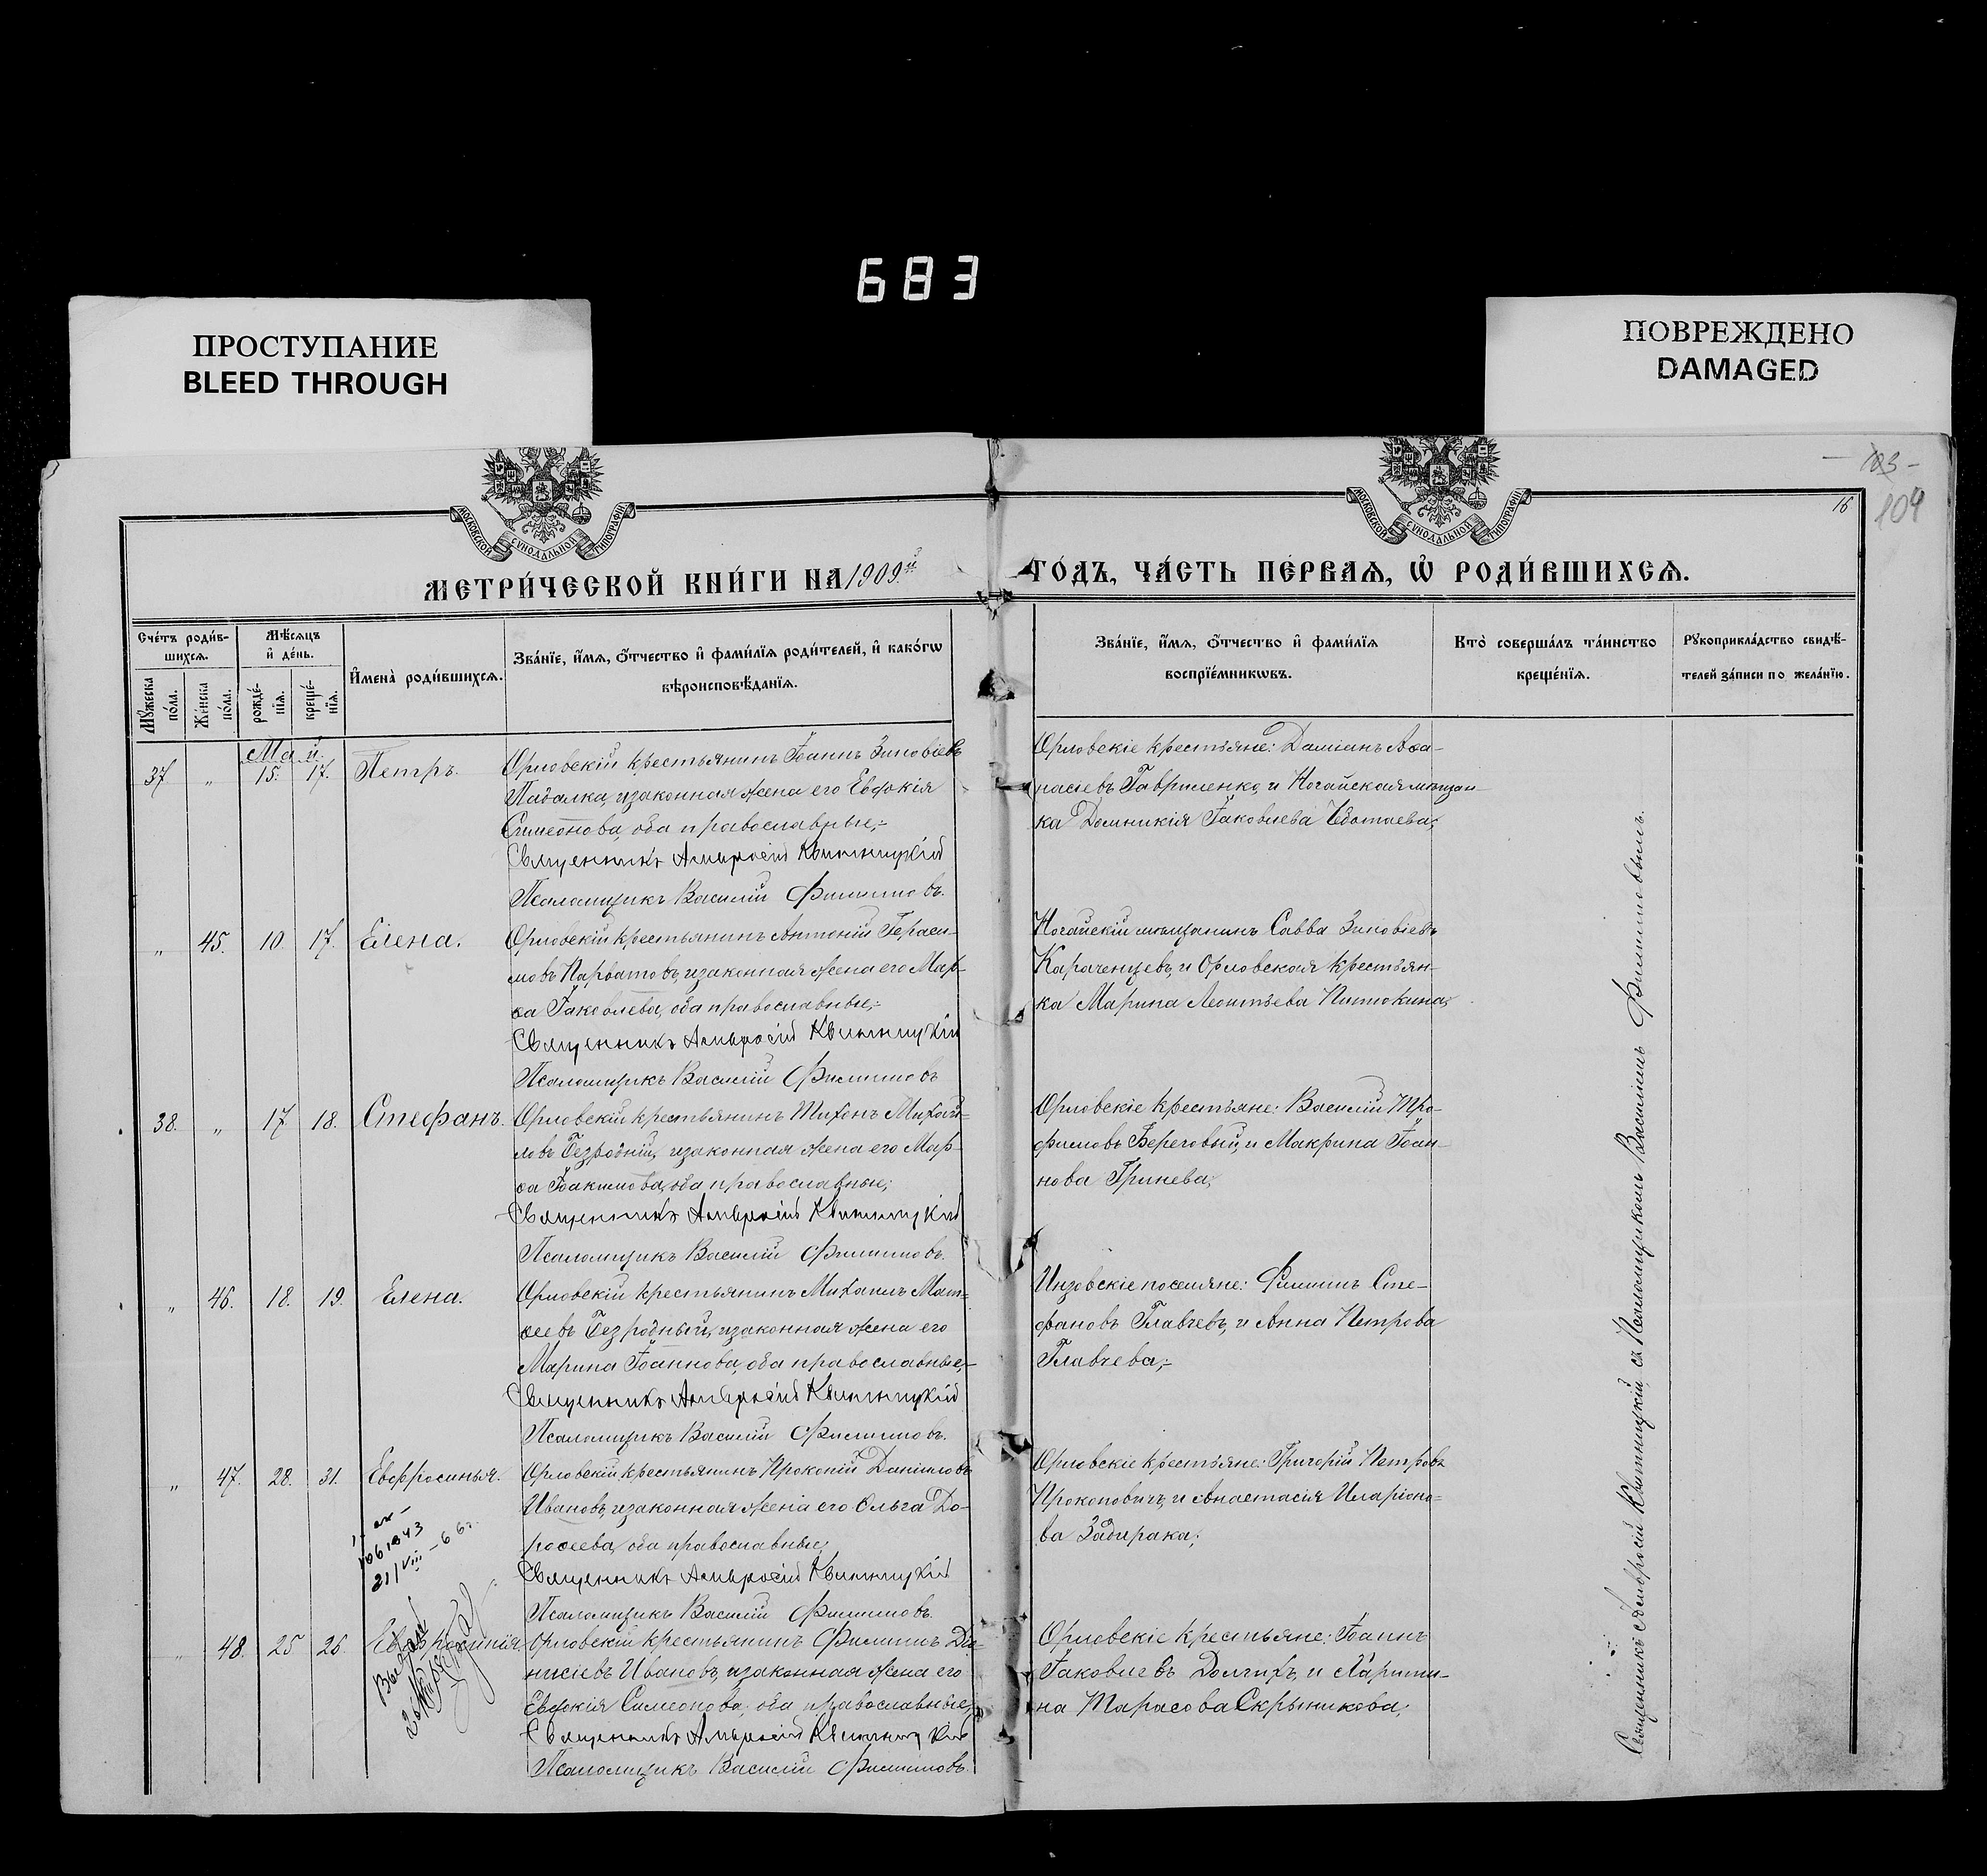 683
ПРОСТУПАНИЕ
BLEED THROUGH
ПОВРЕЖДЕНО
DAMAGED
103 -
104
16
МОСКОВСКОЙ СѴНОДАЛЬНОЙ ТИПОГРАФІИ
МОСКОВСКОЙ СѴНОДАЛЬНОЙ ТИПОГРАФІИ
МЕТРИ́ЧЕСКОЙ КНИ́ГИ НА 1909й
ГО́ДЪ, ЧА́СТЬ ПЕ́РВАѦ, Ѽ РОДИ́ВШИХСѦ.
Сче́тъ роди́в-
шихсѧ.
Мꙋ́жеска по́ла.
Же́нска по́ла.
Мѣ́сѧцъ
и҆ де́нь.
рожде́-
нїѧ.
креще́-
нїѧ.
И҆мена̀ роди́вшихсѧ.
Зва́нїе, и҆́мѧ, ѻ҆́тчество и҆ фами́лїѧ роди́телей, и҆ како́гѡ
вѣроисповѣ́данїѧ.
Зва́нїе, и҆́мѧ, ѻ҆́тчество и҆ фами́лїѧ
воспрїе́мникѡвъ.
Кто̀ соверша́лъ та́инство
креще́нїѧ.
Рꙋкоприкла́дство свидѣ́-
телей за́писи по жела́нїю.
Май.
37 „ 15. 17. Петръ.
Орловскій крестьянинъ Іоаннъ Зиновіевъ
Падалка, и законная жена его Евдокія
Симеонова, оба православные,-
Священникъ Амвросій Квитницкій
Псаломщикъ Василій Филипповъ.
Орловскіе крестьяне: Даміанъ Аѳа-
насіевъ Гавриленко, и Ногайская мѣщан-
ка Домникія Іаковлева Чботаева;
„ 45. 10. 17. Елена.
Орловскій крестьянинъ Антоній Гераси-
мовъ Парватовъ, и законная жена его Мар-
ѳа Іаковлева, оба православные,-
Священникъ Амвросій Квитницкій
Псаломщикъ Василій Филипповъ
Ногайскій мѣщанинъ Савва Зиновіевъ
Караченцевъ, и Орловская крестьян-
ка Марина Леонтьева Питюкина;
38. „ 17 18. Стефанъ.
Орловскій крестьянинъ Тихонъ Михаи-
ловъ Безродній, и законная жена его Мар-
ѳа Іоакимова, оба православные;
Священникъ Амвросій Квитницкій
Псаломщикъ Василій Филипповъ.
Орловскіе крестьяне: Василій Тро-
фимовъ Береговый, и Макрина Іоан-
нова Гринева;
„ 46. 18. 19. Елена.
Орловскій крестьянинъ Михаилъ Мат-
ѳеевъ Безродный, и законная жена его
Марина Іоаннова, оба православные,-
Священникъ Амвросій Квитницкій
Псаломщикъ Василій Филипповъ.
Инзовскіе поселяне: Филиппъ Сте-
фановъ Главчевъ, и Анна Петрова
Главчева,-
„ 47. 28. 31. Евфросинья.
Орловскій крестьянинъ Прокопій Даніиловъ
Ивановъ, и законная жена его Ольга До-
роѳеева, оба православные;
Священникъ Амвросій Квитницкій
Псаломщикъ Василій Филипповъ.
Орловскіе крестьяне: Григорій Петровъ
Прокоповичъ, и Анастасія Иларіоно-
ва Задирака;
21/VIII - 66г.
„ 48. 25 26. Евфросинія
Орловскій крестьянинъ Филиппъ Діо-
нисіевъ Ивановъ, и законная жена его
Евдокія Симеонова, оба православные,
Священникъ Амвросій Квитницкій
Псаломщикъ Василій Филипповъ.
Орловскіе крестьяне: Іоаннъ
Іаковлевъ Долгихъ, и Харити-
на Тарасова Скрыникова;
Священникъ Амвросій Квитницкій съ Псаломщикомъ Василіемъ Филипповымъ.